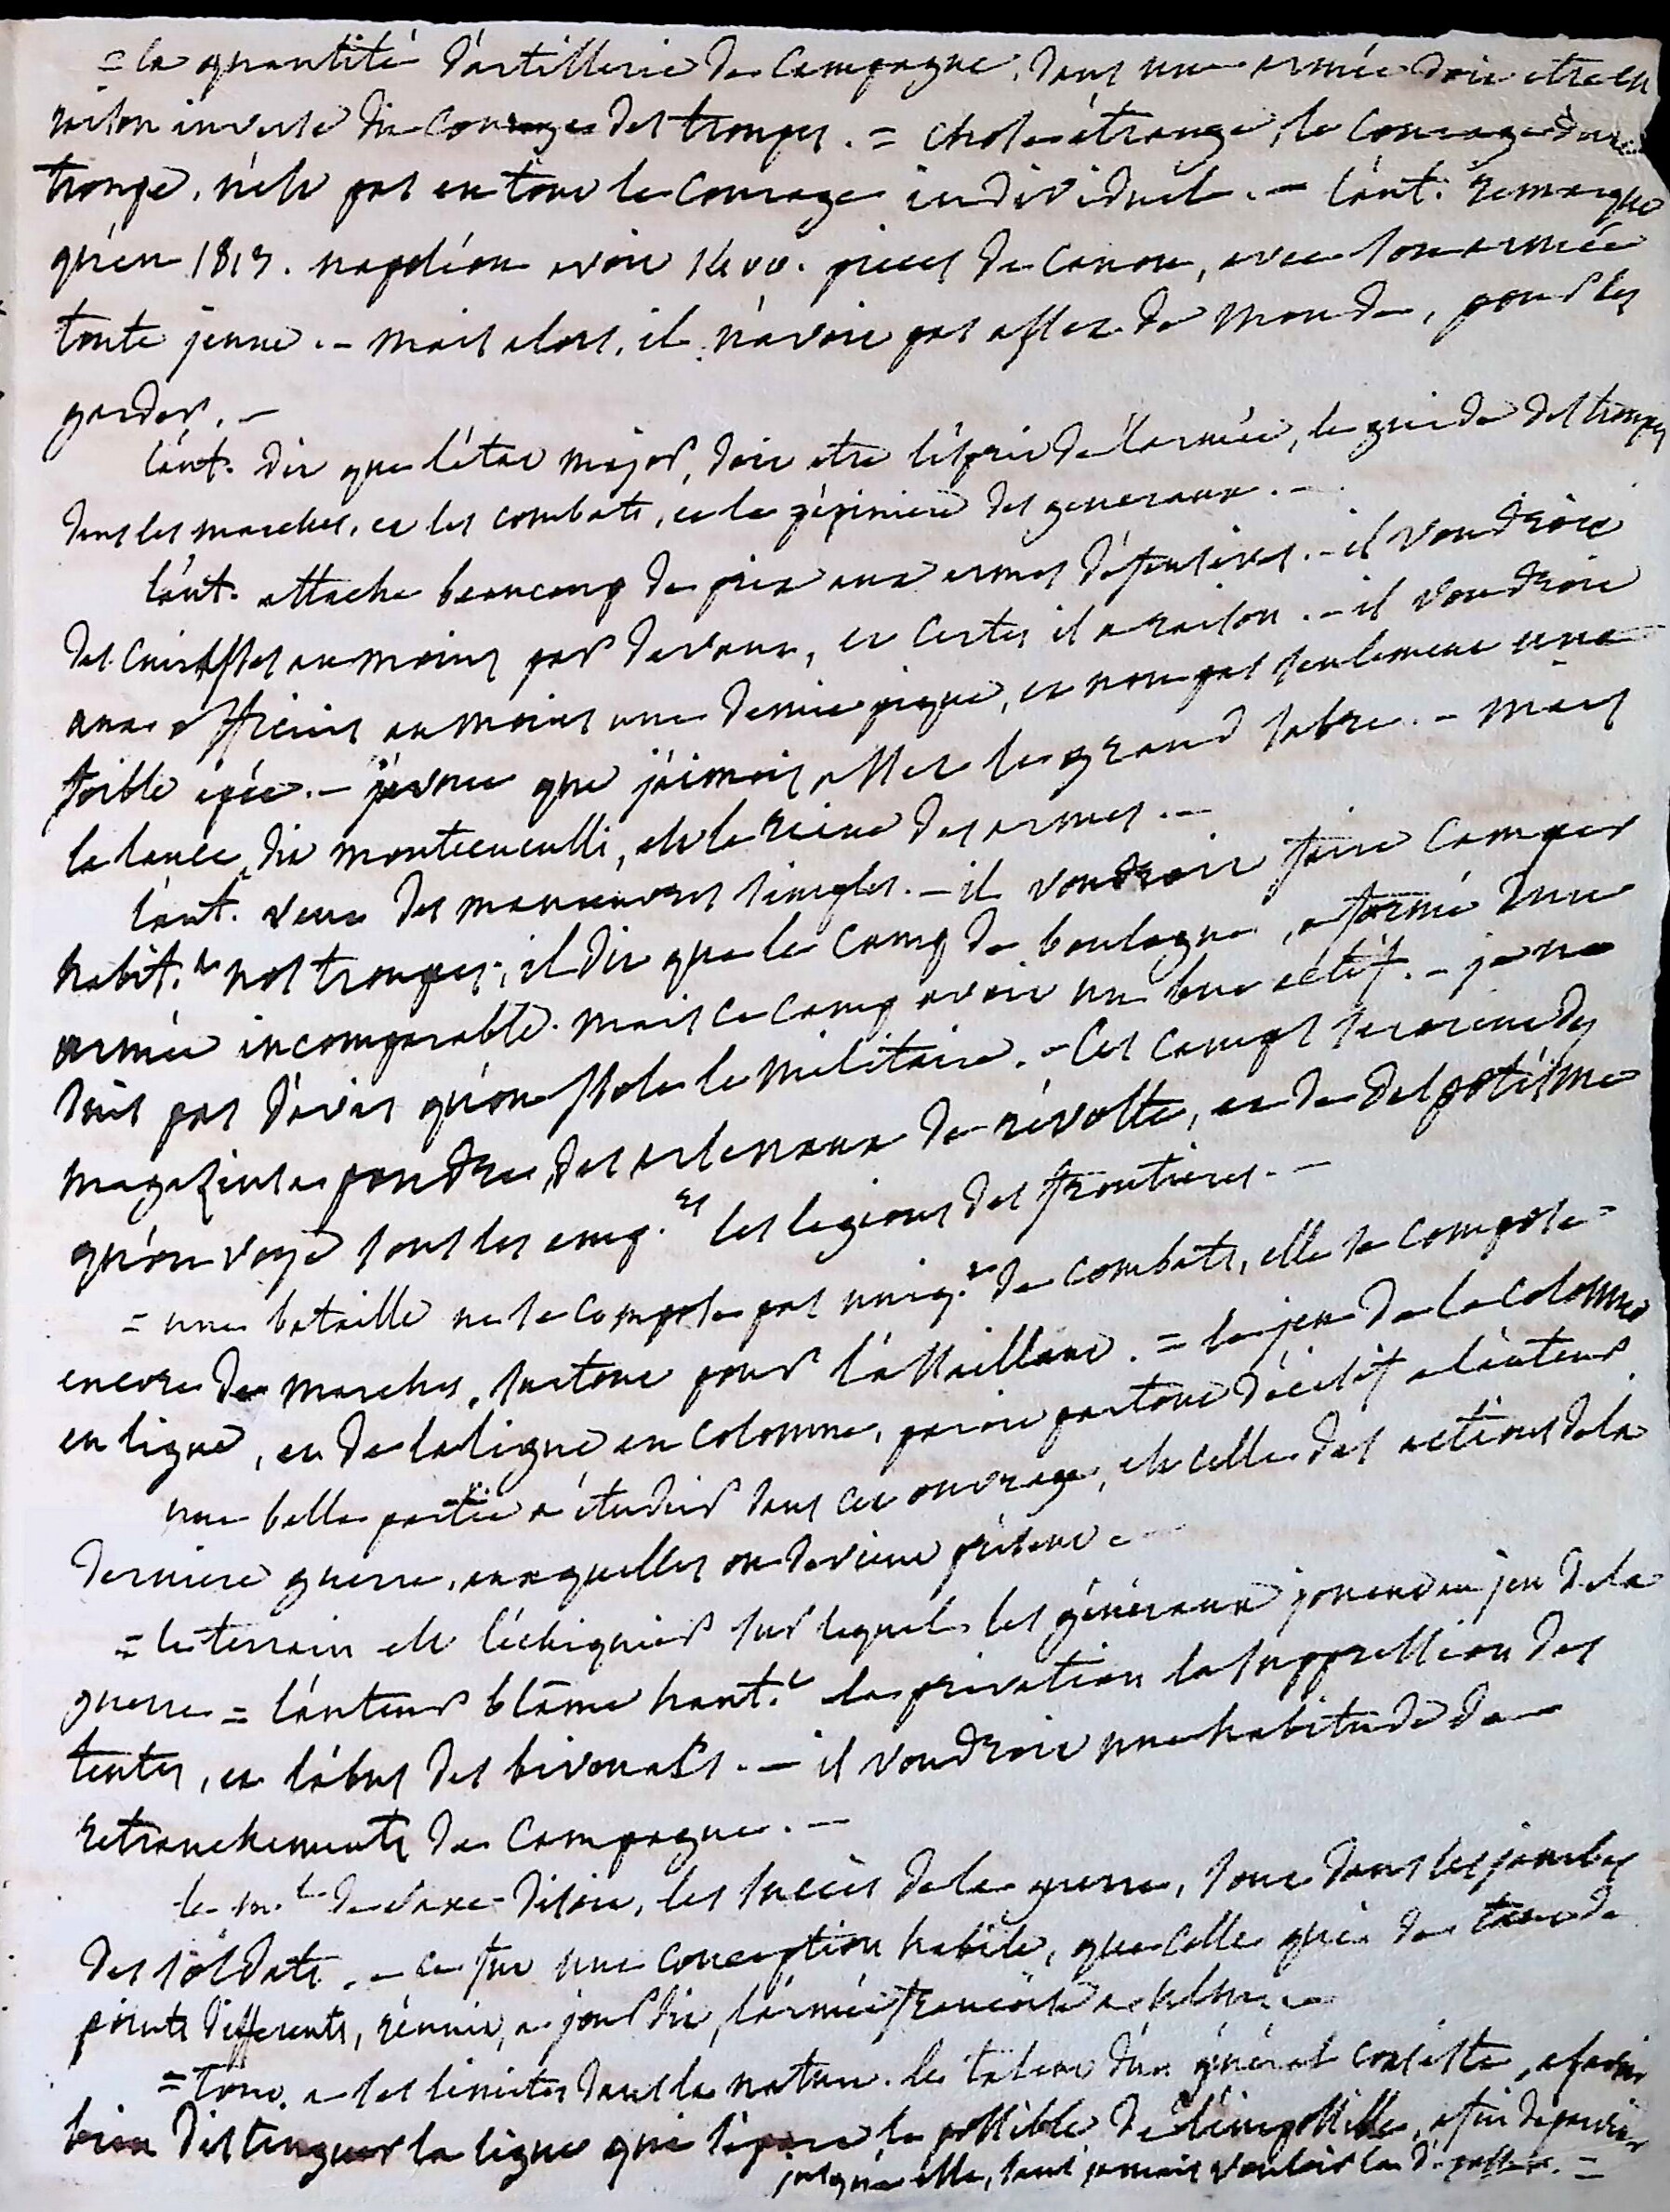 = la quantité d'artillerie de campagne, dans une armée doit etre en
raison inverse du courage des troupes. = chose étrange, le courage d'une
troupe, n'est pas en tout le courage individuel. — l'aut. remarque
qu'en 1813. napoléon avoit 1400. pieces de canon, avec son armée
toute jeune. — mais alors, il n'avoit pas assez de monde, pour les
garder. —
l'aut. dit que l'état major, doit etre l'esprit de l'armée, le guide des troupes
dans les marches, et les combats, et la pépiniere des generaux. —
l'aut. attache beaucoup de prix aux armes défensives. — il voudroit
des cuirasses au moins par devant, et certes il a raison. — il voudroit
aux officiers au moins une demie pique, et non pas seulement une
foible épée. — j'avoue que j'aimois assez le grand sabre. — mais
la lance, dit montecuculli, est la reine des armes. —
l'aut. veut des manœuvres simples. — il voudroit faire camper
habit.t nos troupes; il dit que le camp de boulogne, a formé une
armée incomparable. mais ce camp avoit un but actif. — je ne
suis pas d'avis qu'on isole le militaire. — les camps seroient des
magazins a poudre, des arsenaux de révolte, et de despotisme
qu'on voye sous les emp.rs les legions des frontieres. —
= une bataille ne se compose pas uniq.t de combats, elle se compose
encore de marches, surtout pour l'assaillant. = le jeu de la colonne
en ligne, et de la ligne en colonne, paroit partout décisif a l'auteur
une belle partie a étudier dans cet ouvrage, est celle des actions de la
derniere guerre, auxquelles on devient présent. —
= le terrain est l'échiquier sur lequel les généraux jouent au jeu de la
guerre = l'auteur blâme haut.t la privation la suppression des
tentes, et l'abus des bivouacs. — il voudroit une habitude de
retranchements de campagne. —
le m.l de saxe disoit, les succès de la guerre, sont dans les jambes
des soldats. — ce fut une conception habile, que celle qui de tant de
points differents, réunit, a jour dit, l'armée françoise a
= tout a ses limites dans la nature. le talent d'un général consiste, a savoir
bien distinguer la ligne qui sépare le possible de l'impossible, afin de parvenir
jusqu'a elle, sans jamais vouloir la dépasser. =